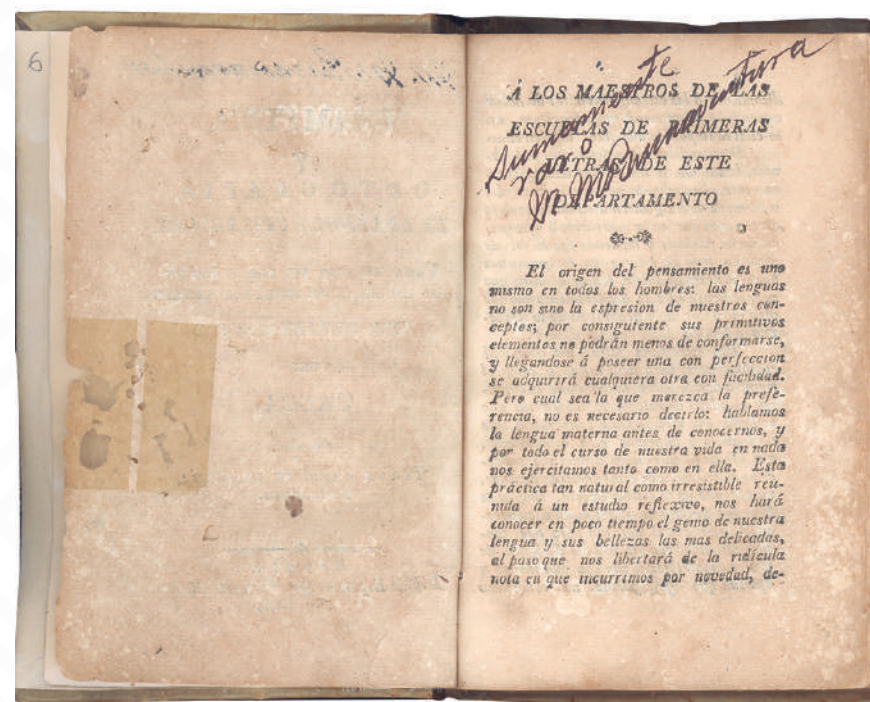 6
Á LOS MAESTROS DE LAS
ESCUELAS DE PRIMERAS
LETRAS DE ESTE
DEPARTAMENTO
Sumamente
raro
El origen del pensamiento es uno
mismo en todos los hombres: las lenguas
no son sino la espresion de nuestros con-
ceptos; por consiguiente sus primitivos
elementos no podrán menos de conformarse,
y llegandose á poseer una con perfeccion
se adquirirá cualquiera otra con facilidad.
Pero cual sea la que merezca la prefe-
rencia, no es necesario decirlo: hablamos
la lengua materna antes de conocernos, y
por todo el curso de nuestra vida en nada
nos ejercitamos tanto como en ella. Esta
práctica tan natural como irresistible reu-
nida á un estudio reflexivo, nos hará
conocer en poco tiempo el genio de nuestra
lengua y sus bellezas las mas delicadas,
al paso que nos libertará de la ridícula
nota en que incurrimos por novedad, de-